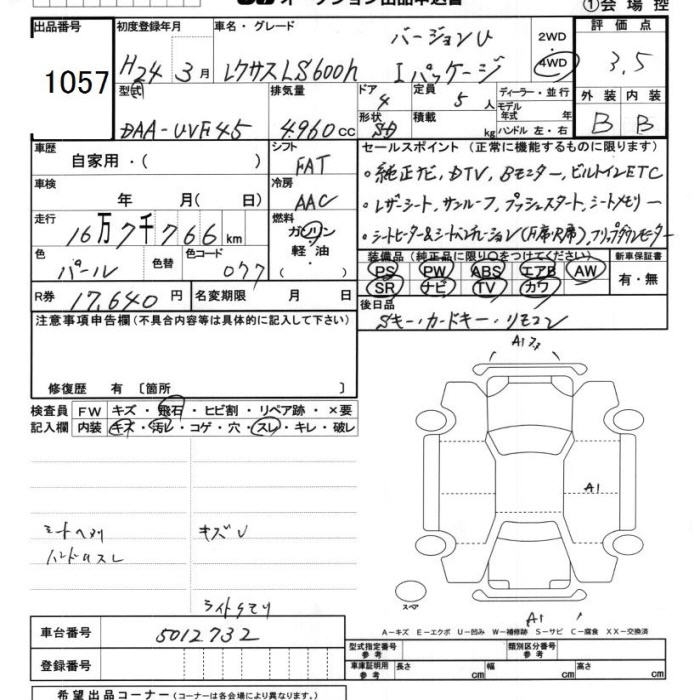 オークション出品申込書
①会場控
出品番号 1057
初度登録年月 H24年 3月
車名・グレード レクサスLS600h バージョンU Iパッケージ
2WD 4WD
評価点 3.5
型式 DAA-UVF45
排気量 4.960cc
ドア 4
形状 SD
定員 5人
積載 kg
ディーラー・並行
モデル年式 年
ハンドル 左・右
外装 内装
B B
車歴 自家用・( )
シフト FAT
セールスポイント (正常に機能するものに限ります)
・純正ナビ,DTV,Bモニター,ビルトインETC
・レザーシート,サンルーフ,プッシュスタート,シートメモリー
・シートヒーター&シートベンチレーション(F席・R席),フリップダウンモニター
車検 年 月( 日)
冷房 AAC
走行 16万7千766km
燃料 ガソリン・軽油・( )
色 パール
色替
色コード 077
装備品 (純正品に限り○をつけてください)
PS PW ABS エアB AW
SR ナビ TV カワ
新車保証書
有・無
R券 17,640円
名変期限 月 日
後日品
Sキー・カードキー・リモコン
注意事項申告欄(不具合内容等は具体的に記入して下さい)
修復歴 有 〔箇所 〕
検査員記入欄
FW キズ・飛石・ヒビ割・リペア跡・×要
内装 キズ・汚レ・コゲ・穴・スレ・キレ・破レ
シートヘタリ
キズU
ハンドルスレ
ライトクモリ
A1
A1
A1
スペア
A-キズ E-エクボ U-凹み W-補修跡 S-サビ C-腐食 XX-交換済
車台番号 5012732
登録番号
型式指定番号 参考
類別区分番号 参考
車庫証明用 参考 長さ cm 幅 cm 高さ cm
希望出品コーナー (コーナーは各会場により異なります。)